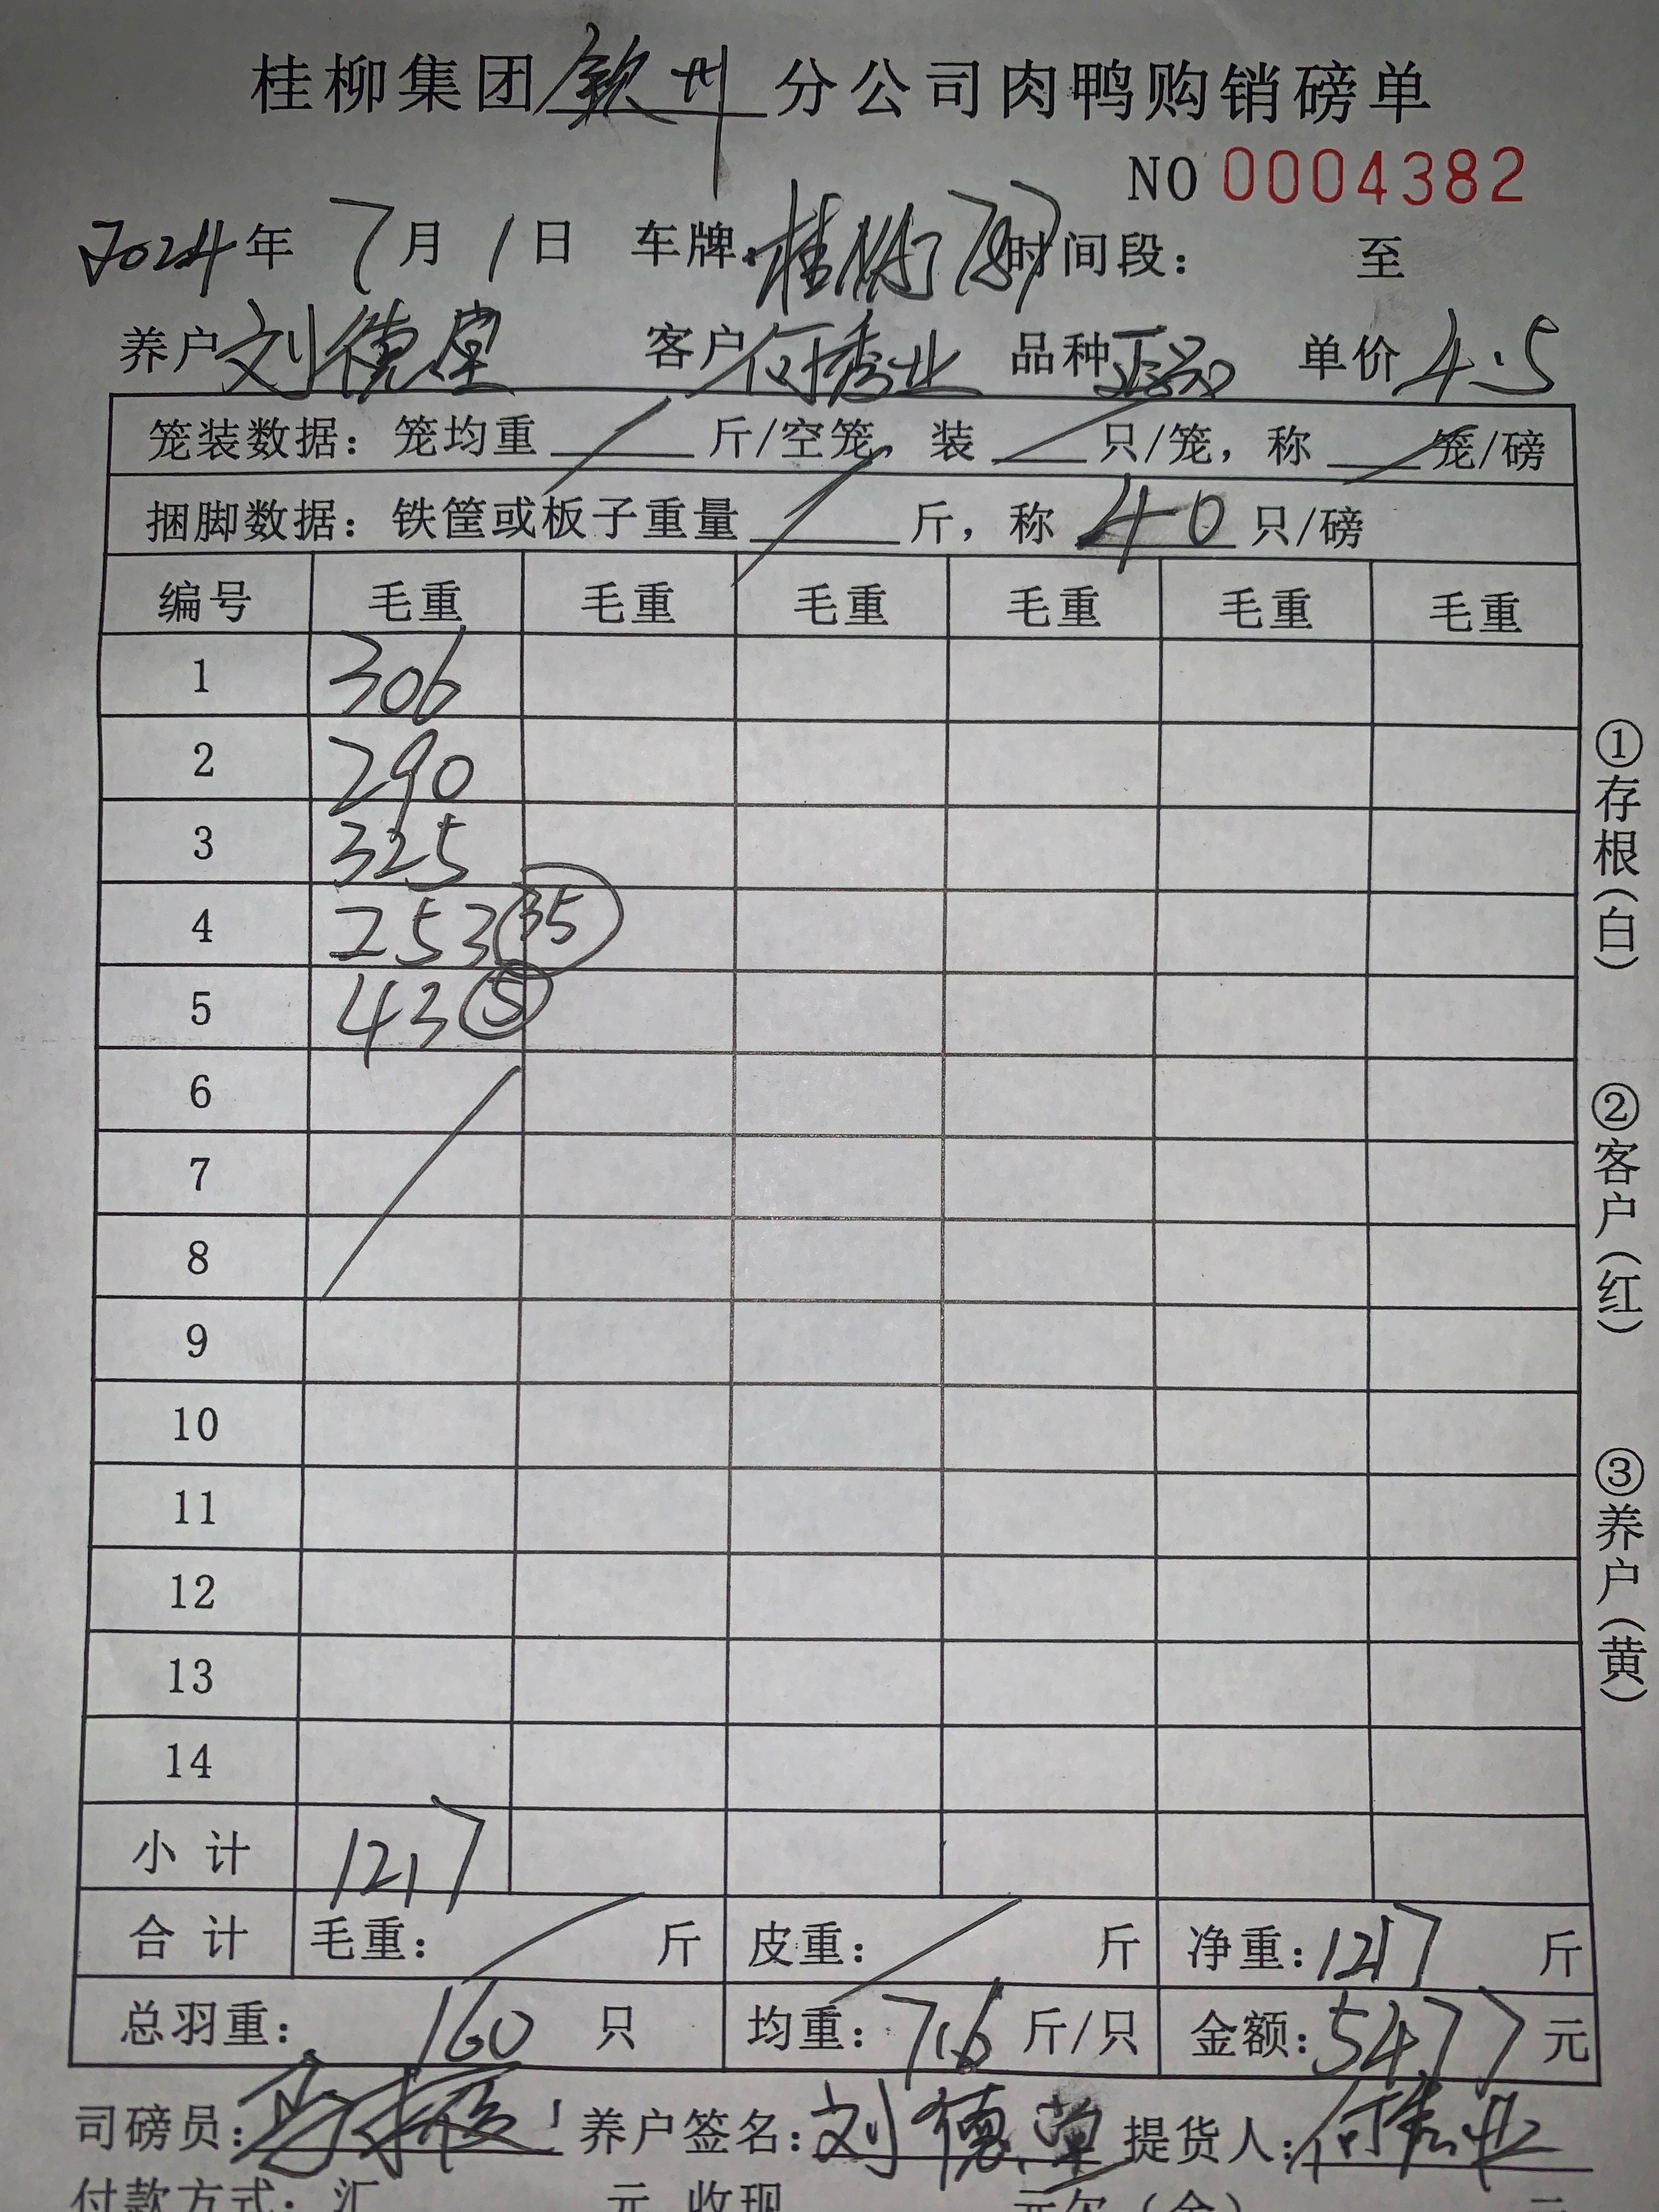 桂柳集团钦州分公司肉鸭购销磅单
NO 0004382
2024年 7月 1日 车牌: 桂 787 时间段: 至
养户 刘德堂 客户 何秀业 品种 正品 单价 4.5
笼装数据: 笼均重 / 斤/空笼, 装 / 只/笼, 称 / 笼/磅
捆脚数据: 铁筐或板子重量 / 斤, 称 40 只/磅
编号 毛重 毛重 毛重 毛重 毛重 毛重
1 306
2 290
3 325
4 253 35
5 43 5
6
7
8
9
10
11
12
13
14
小计 1217
合计 毛重: / 斤 皮重: / 斤 净重: 1217 斤
总羽重: 160 只 均重: 7.6 斤/只 金额: 5477 元
司磅员: 养户签名: 刘德堂 提货人: 何秀业
付款方式: 汇 元 收现 元欠(余) 元
①存根(白)
②客户(红)
③养户(黄)